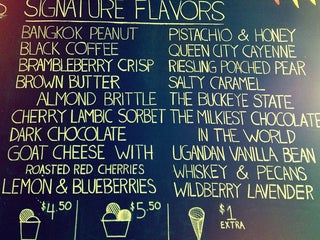 SIGNATURE FLAVORS
BANGKOK PEANUT
BLACK COFFEE
BRAMBLEBERRY CRISP
BROWN BUTTER
ALMOND BRITTLE
CHERRY LAMBIC SORBET
DARK CHOCOLATE
GOAT CHEESE WITH
ROASTED RED CHERRIES
LEMON & BLUEBERRIES
PISTACHIO & HONEY
QUEEN CITY CAYENNE
RIESLING POACHED PEAR
SALTY CARAMEL
THE BUCKEYE STATE
THE MILKIEST CHOCOLATE
IN THE WORLD
UGANDAN VANILLA BEAN
WHISKEY & PECANS
WILDBERRY LAVENDER
$4.50
$5.50
$1
EXTRA